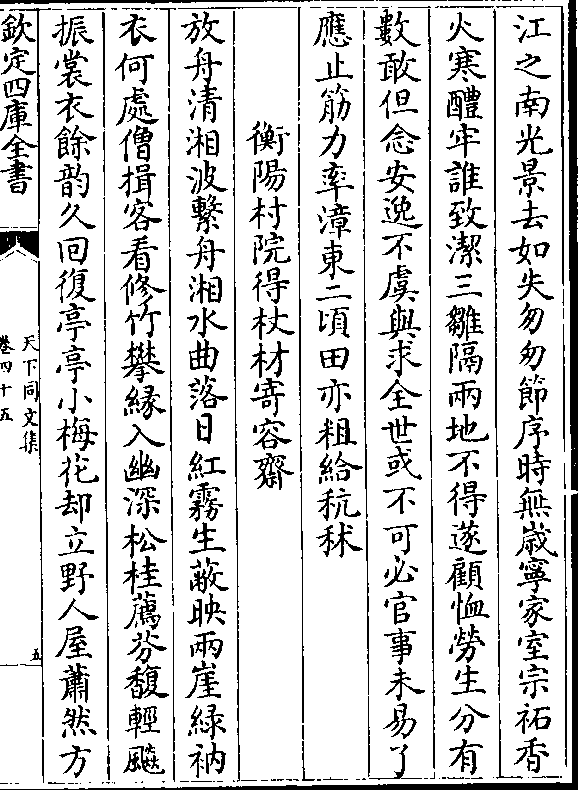 江之南光景去如失匆匆節序時無歳寧家室宗祏香
火寒醴牢誰致潔三雛隔兩地不得遂顧恤勞生分有
數敢但念安逸不虞與求全世或不可必官事未易了
應止筋力率漳東二頃田亦粗給秔秫
衡陽村院得杖材寄容齋
放舟清湘波繫舟湘水曲落日紅霧生蔽映兩崖緑衲
衣何處僧揖客看修竹攀縁入幽深松桂薦芬馥輕飈
振裳衣餘韵久回復亭亭小梅花却立野人屋蕭然方
欽定四庫全書
天下同文集
卷四十五
五